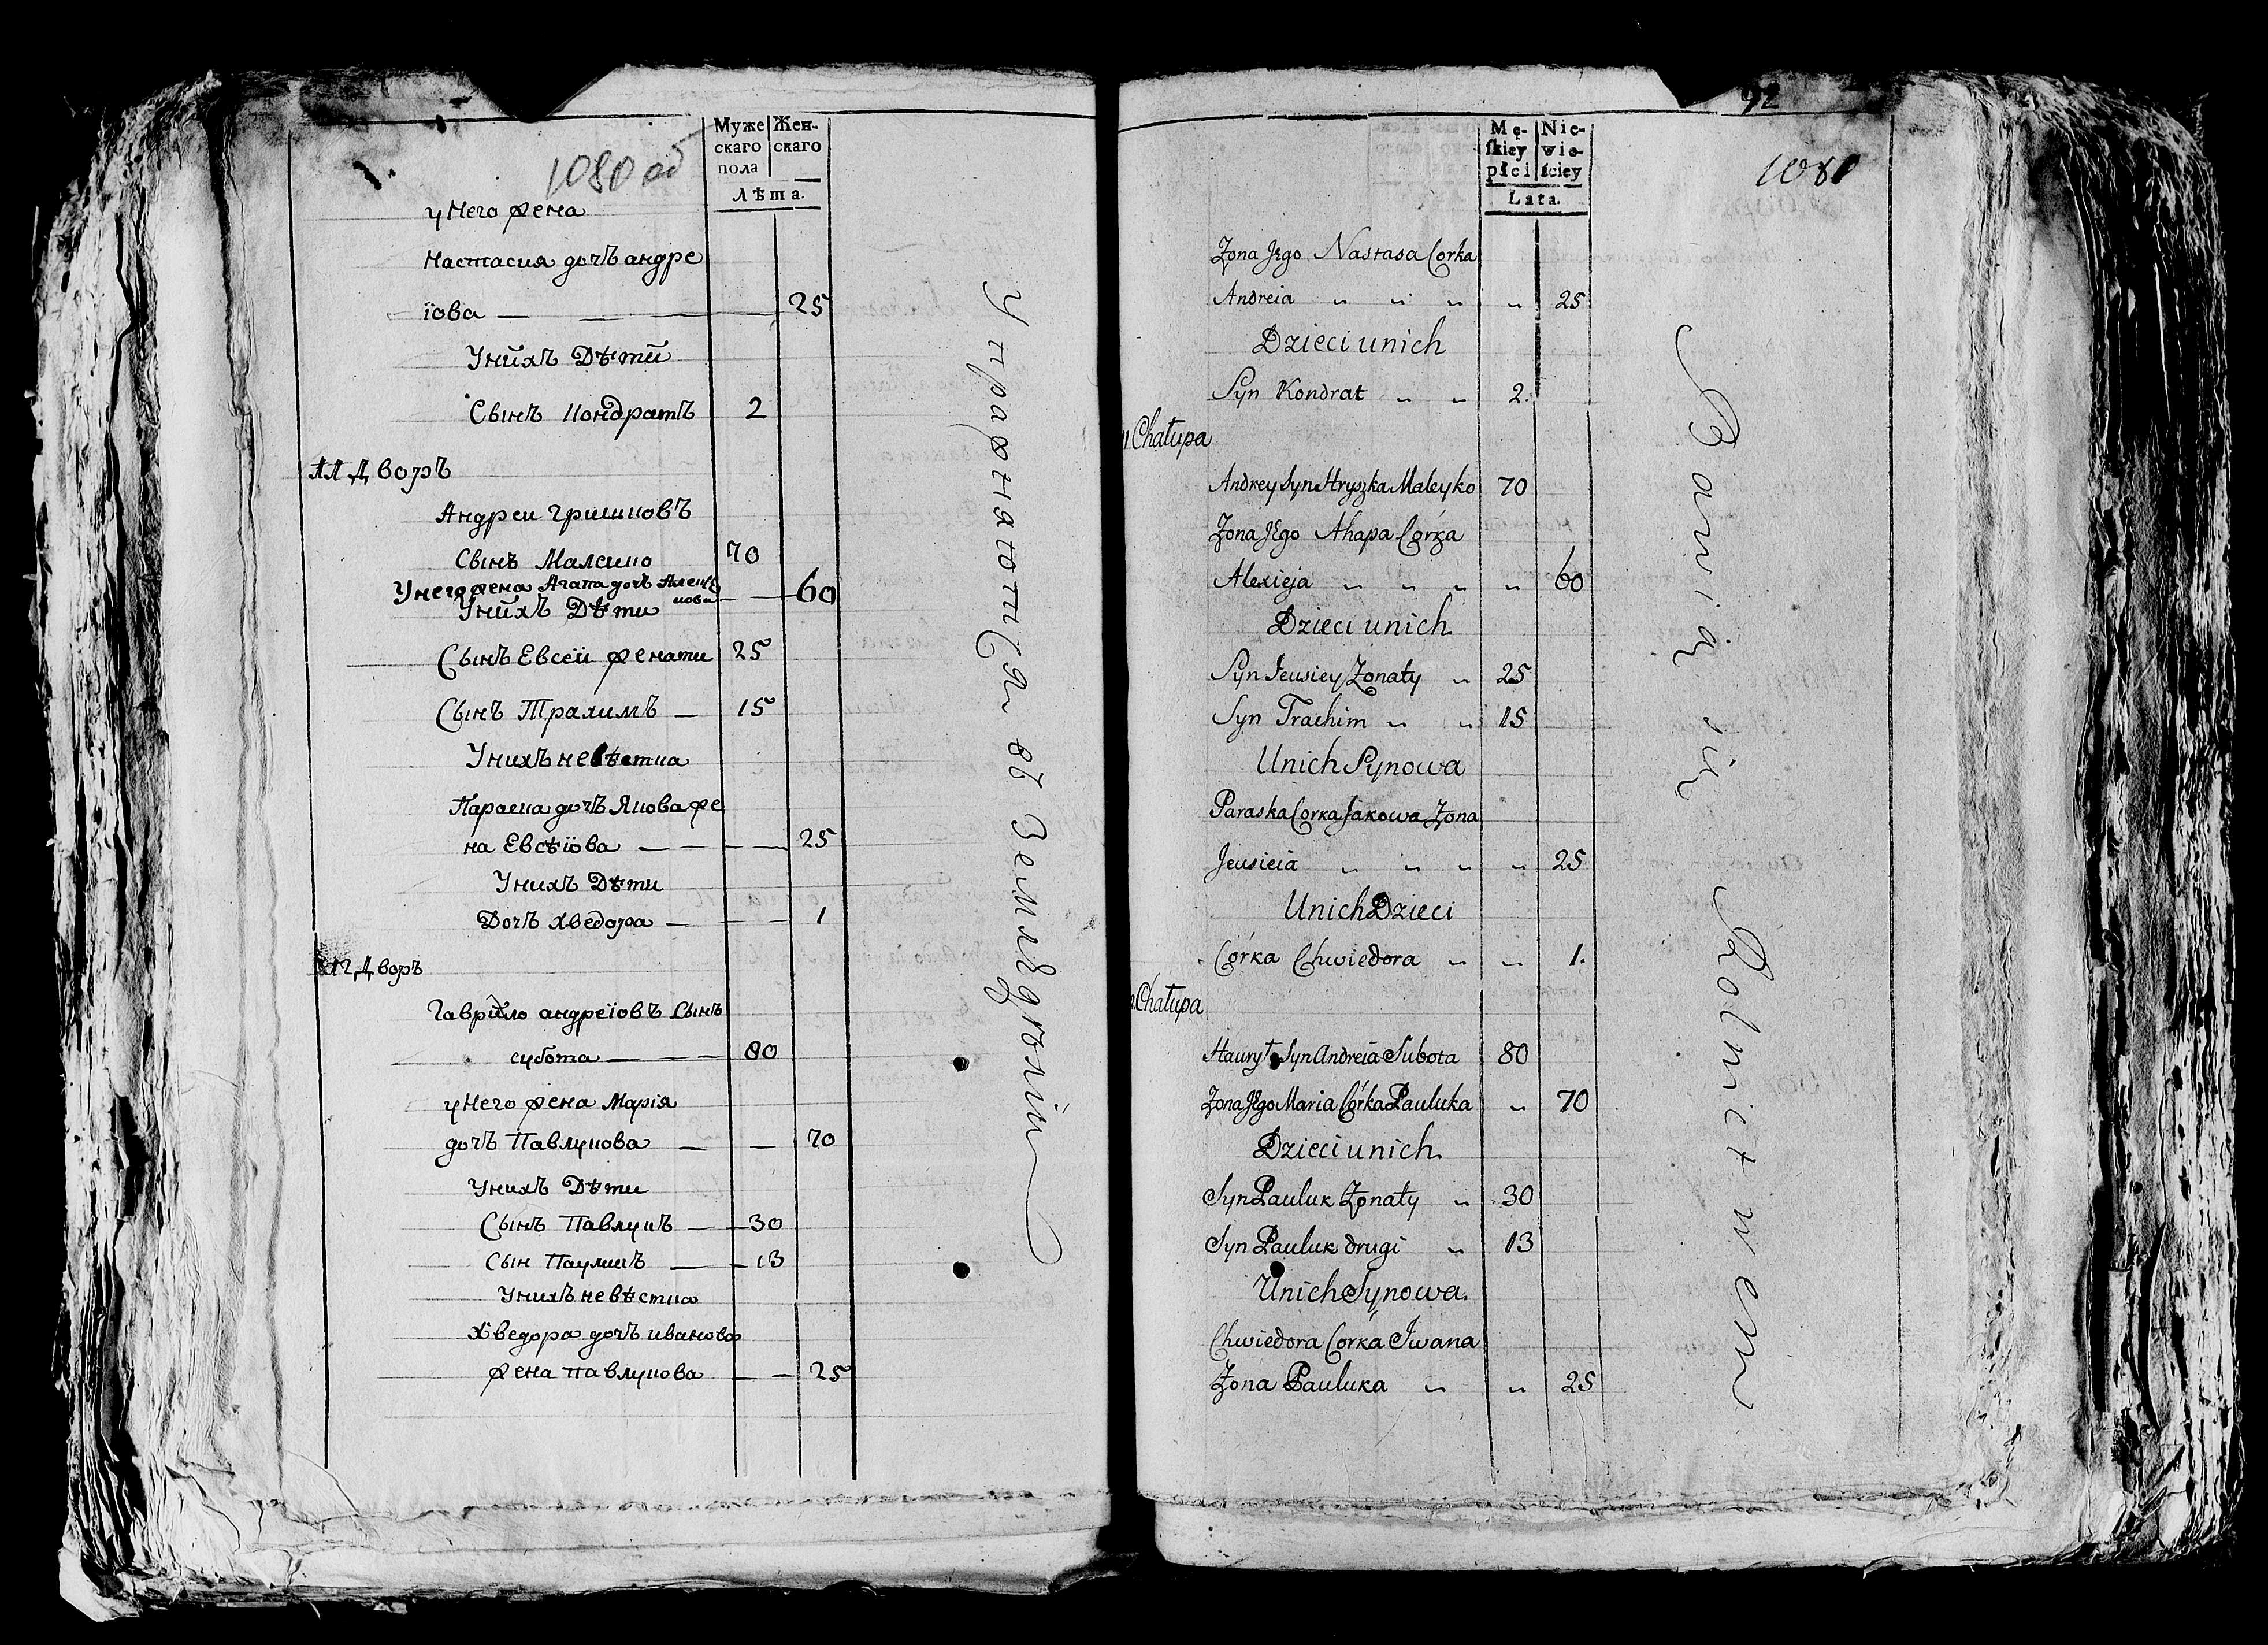 1080 об
Муже Жен-
скаго скаго
пола
Лѣта.
у Него жена
Настасия дочъ андре
іова — — — 25
Унихъ Дѣти
Сынъ Кондратъ 2
11 Дворъ
Андреи Гришковъ
Сынъ Малеико 70
У него жена Агапа дочъ Алексѣ
иова — — 60
Унихъ Дѣти
Сынъ Евсеи женати 25
Сынъ Трахимъ — 15
Унихъ невѣстка
Параска дочъ Якова же
на Евсѣіова — — — — 25
Унихъ Дѣти
Дочъ Хведора — — — 1
12 Дворъ
Гаврило андреіовъ Сынъ
субота — — — 80
у Него жена Марія
дочъ Павлукова — — 70
Унихъ Дѣти
Сынъ Павлукъ — — 30
Сын Паулюкъ — — 13
Унихъ невѣстка
Хведора дочъ иванова
жена павлукова — — 25
Упражняютися въ Земледѣліи
92
1081
Mę- Nie-
ſkiey wie-
płci ściey
Lata.
Zona Jego Nastasa Corka
Andreia „ „ „ „ 25
Dzieci unich
Syn Kondrat „ „ 2.
11. Chałupa
Andrey Syn Hryszka Maleyko 70
Zona Jego Ahapa Córka
Alexieja „ „ „ „ 60
Dzieci unich
Syn Jeusiey Zonaty „ 25
Syn Trachim „ „ 15
Unich Synowa
Paraska Corka Jakowa Zona
Jeusieia „ „ „ „ 25
Unich Dzieci
Córka Chwiedora „ „ 1.
2. Chałupa
Haurył Syn Andreia Subota 80
Zona Jego Maria Córka Pauluka „ 70
Dzieci unich.
Syn Pauluk Zonaty „ 30
Syn Pauluk drugi „ 13
Unich Synowa.
Chwiedora Corka Iwana
Zona Pauluka „ „ 25
Bawią się Rolnictwem